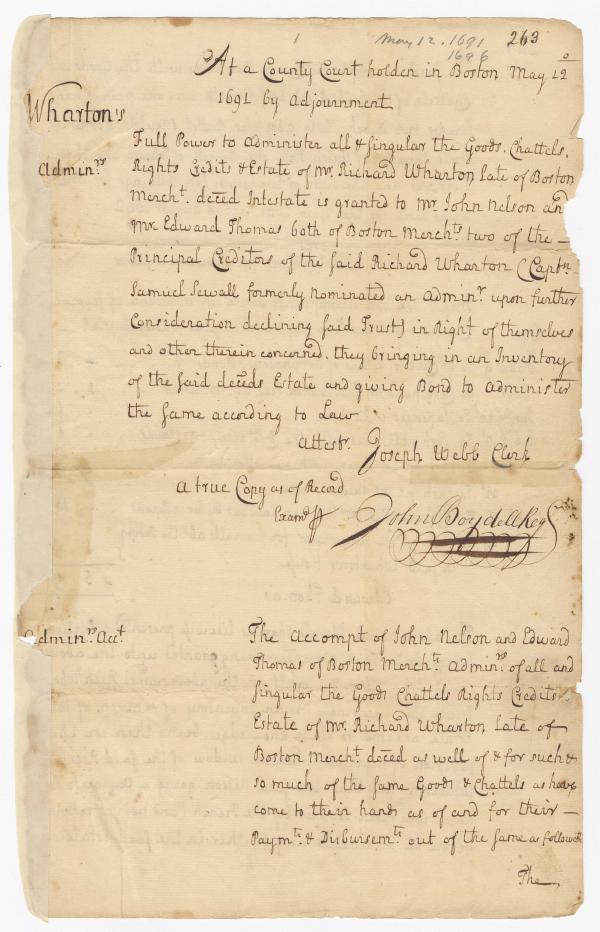 1 May 12. 1691 263
1696
At a County Court holden in Boston May 12º
1691 by Adjournment
Wharton's
Admin.rs
Full Power to Administer all & singular the Goods, Chattels,
Rights Credits & Estate of Mr. Richard Wharton Late of Boston
Mercht. deced Intestate is granted to Mr. John Nelson and
Mr. Edward Thomas both of Boston Merchts two of the —
Principal Creditors of the said Richard Wharton (Captn.
Samuel Sewall formerly nominated an Adminr. upon further
Consideration declining said Trust) in Right of themselves
and other therein concerned, they bringing in an Inventory
of the said deceds Estate and giving Bond to Administer
the same according to Law
Attestr. Joseph Webb Clerk
A true Copy as of Record
Examd John Boydell Reg
Admin.rs Acct.
The Accompt of John Nelson and Edward
Thomas of Boston Mercht.s Admin.rs of all and
singular the Goods Chattels Rights Credits
Estate of Mr. Richard Wharton Late of
Boston Mercht. deced as well of & for such &
so much of the same Goods & Chattels as have
come to their hands as of and for their —
Paymts. & Disbursemts. out of the same as followeth
The